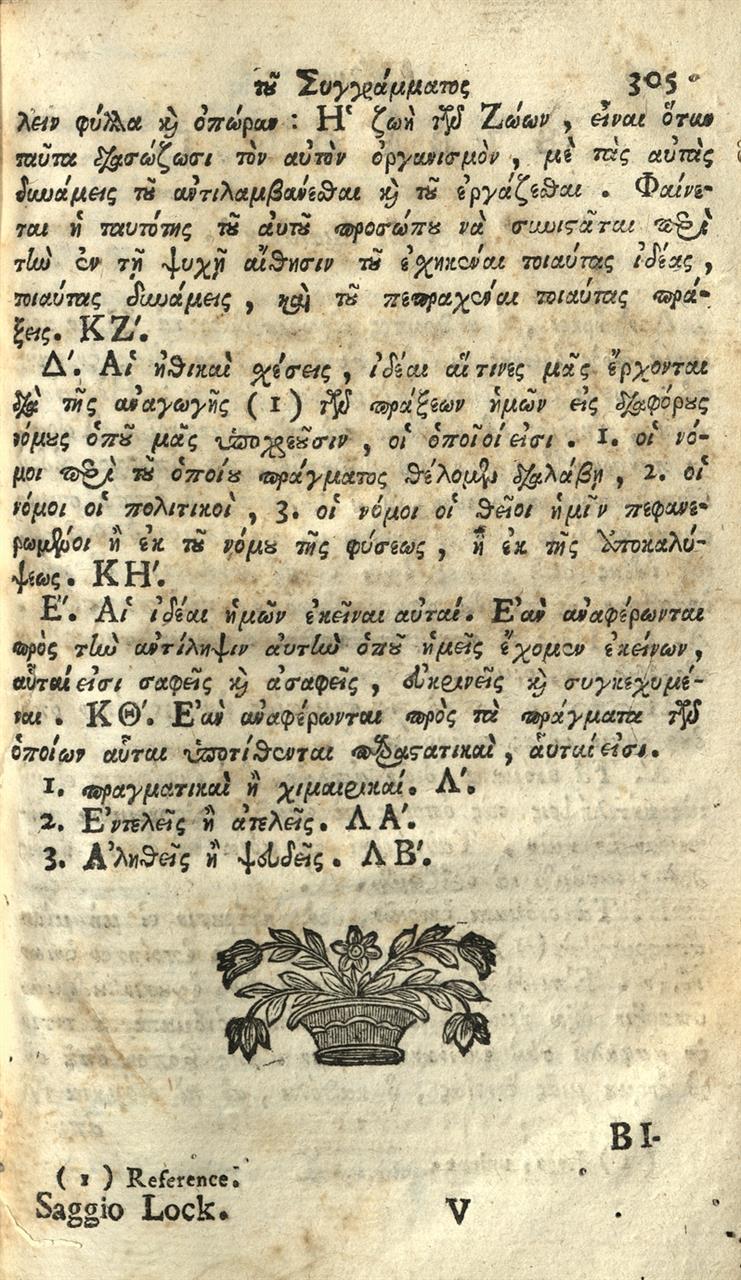 τοῦ Συγγράμματος 305
λειν φύλλα καὶ ὀπώραν : Ἡ ζωὴ τῶν Ζώων , εἶναι ὅταν
ταῦτα διασώζωσι τὸν αὐτὸν ὀργανισμὸν , μὲ τὰς αὐτὰς
δυνάμεις τοῦ ἀντιλαμβάνεσθαι καὶ τοῦ ἐργάζεσθαι . Φαίνε-
ται ἡ ταυτότης τοῦ αὐτοῦ προσώπου νὰ συνισᾶται περὶ
τὴν ἐν τῇ ψυχῇ αἴσθησιν τοῦ ἐσχηκέναι τοιαύτας ἰδέας ,
τοιαύτας δυνάμεις , καὶ τοῦ πεπραχέναι τοιαύτας πρά-
ξεις. ΚΖ΄.
Δ΄. Αἱ ἠθικαὶ σχέσεις , ἰδέαι αἵ τινες μᾶς ἔρχονται
διὰ τῆς ἀναγωγῆς (1) τῶν πράξεων ἡμῶν εἰς διαφόρους
νόμους ὁποῦ μᾶς ὑποχρεοῦσιν , οἱ ὁποῖοί εἰσι . 1. οἱ νό-
μοι περὶ τοῦ ὁποίου πράγματος θέλομεν διαλάβῃ , 2. οἱ
νόμοι οἱ πολιτικοὶ , 3. οἱ νόμοι οἱ θεῖοι ἡμῖν πεφανε-
ρωμένοι ἢ ἐκ τοῦ νόμου τῆς φύσεως , ἢ ἐκ τῆς Ἀποκαλύ-
ψεως. ΚΗ΄.
Ε΄. Αἱ ἰδέαι ἡμῶν ἐκεῖναι αὐταί. Ἐὰν ἀναφέρωνται
πρὸς τὴν ἀντίληψιν αὐτὴν ὁποῦ ἡμεῖς ἔχομεν ἐκείνων ,
αὗταί εἰσι σαφεῖς καὶ ἀσαφεῖς , εὐκρινεῖς καὶ συγκεχυμέ-
ναι . ΚΘ΄. Ἐὰν ἀναφέρωνται πρὸς τὰ πράγματα τῶν
ὁποίων αὗται ὑποτίθενται παραστατικαὶ , αὗταί εἰσι.
1. πραγματικαὶ ἢ χιμαιρικαί. Λ΄.
2. Ἐντελεῖς ἢ ἀτελεῖς. ΛΑ΄.
3. Ἀληθεῖς ἢ ψευδεῖς. ΛΒ΄.
ΒΙ-
(1) Reference.
Saggio Lock. V